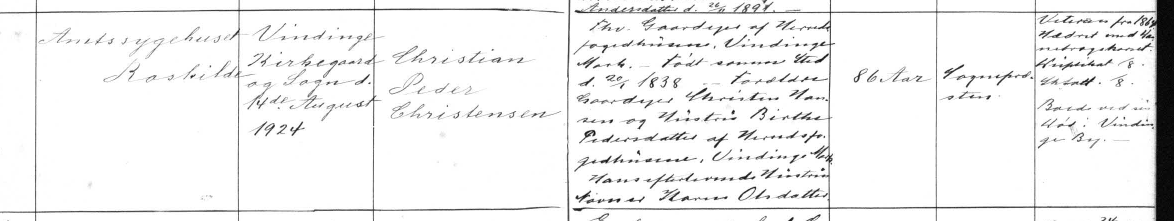 Andersdatter d. 20/11 1891.
Amtssygehuset
Roskilde
Vindinge
Kirkegaard
og Sogn d.
14de August
1924
Christian
Peder
Christensen
Fhv. Gaardejer af Herreds
fogedhusene, Vindinge
Mark. — Født samme Sted
d. 20/1 1838 — Forældre
Gaardejer Christen Han-
sen og Hustru Birthe
Pedersdatter af Herredsfo-
gedhusene, Vindinge Mark.
Hans efterlevende Hustrus
Navn er Karen Olsdatter.
86 Aar
Sognepræ-
sten.
Veteran fra 1864
Hædret med Dan-
nebrogskorset.
8.
Sk. Satt. 8.
Boede ved sin
Død i Vindin-
ge By. —